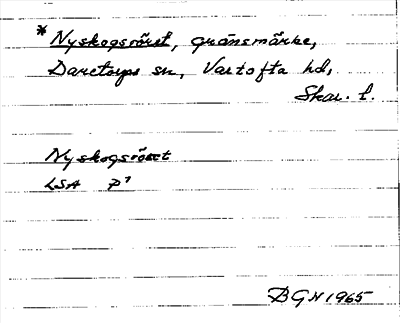 * Nyskogsröset, gränsmärke,
Daretorps sn, Vartofta hd,
Skar. l.
Nyskogsröset
LSA P7
BGN 1965